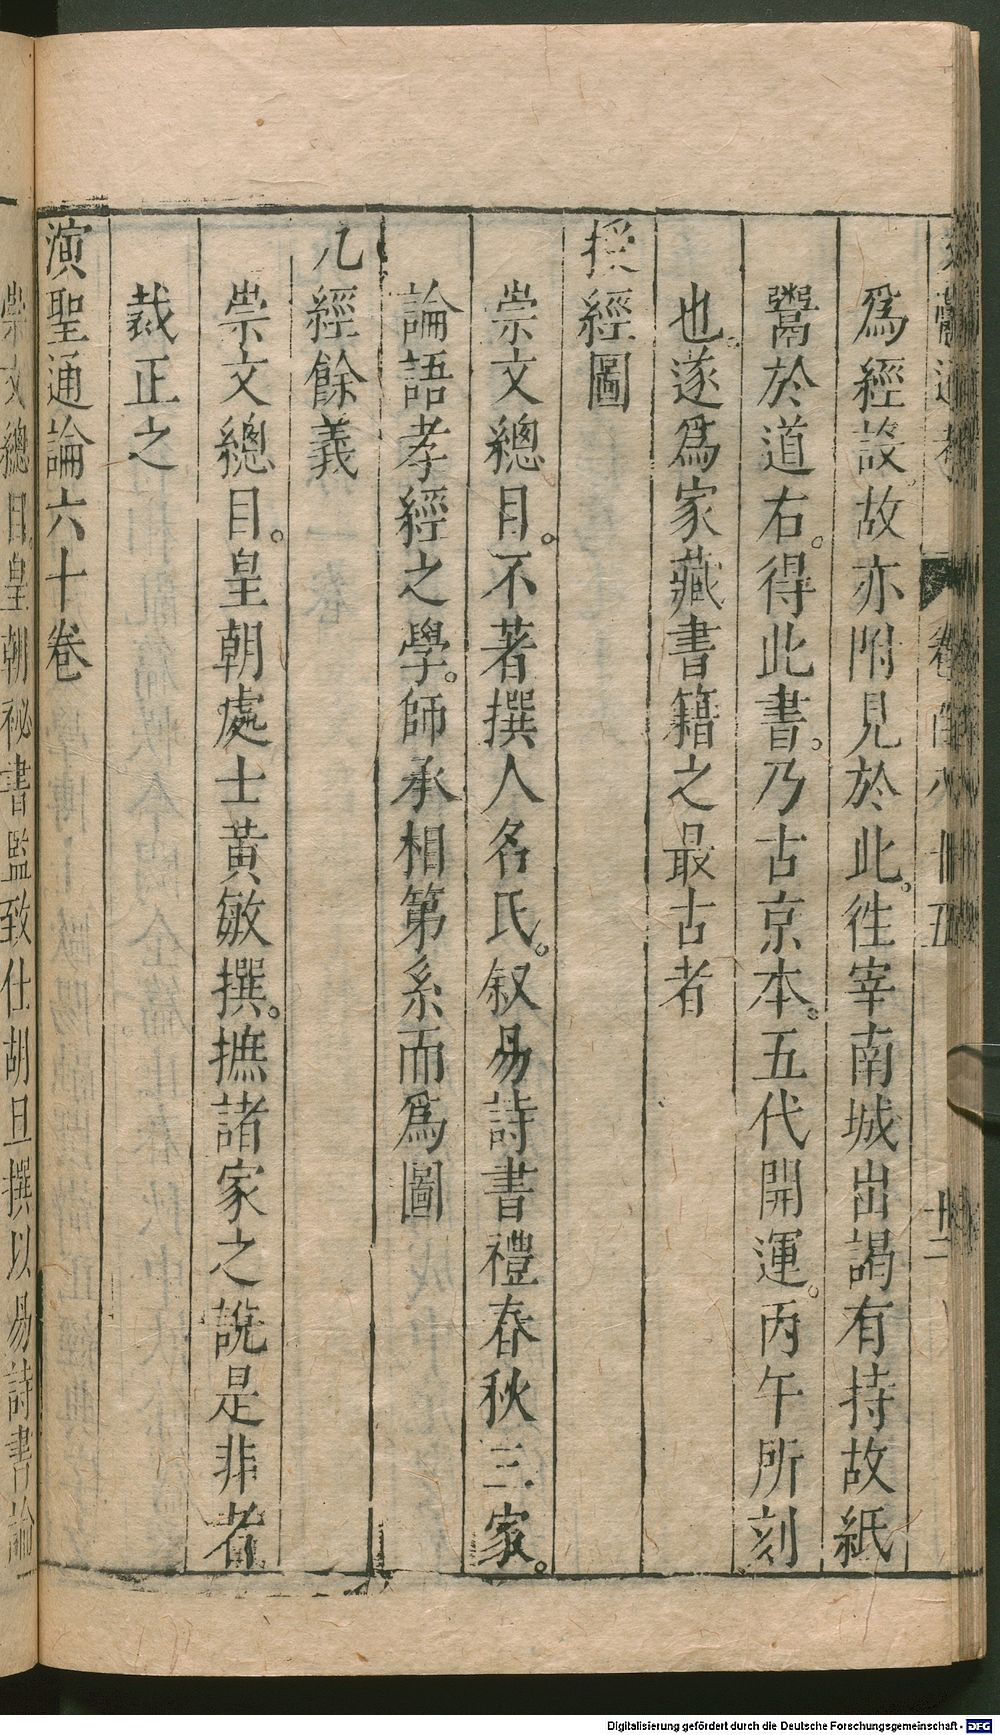 卷百八十五
十二
爲經設故亦附見於此。徃宰南城出謁有持故紙
鬻於道右。得此書。乃古京本。五代開運。丙午所刻
也。遂爲家藏書籍之最古者
授經圖
崇文總目。不著撰人名氏。叙易詩書禮春秋三家。
論語孝經之學。師承相第系而爲圖
九經餘義
崇文總目。皇朝處士黃敏撰。摭諸家之說是非者
裁正之
演聖通論六十卷
崇文總目。皇朝祕書監致仕胡旦撰以易詩書論
Digitalisierung gefördert durch die Deutsche Forschungsgemeinschaft - DFG